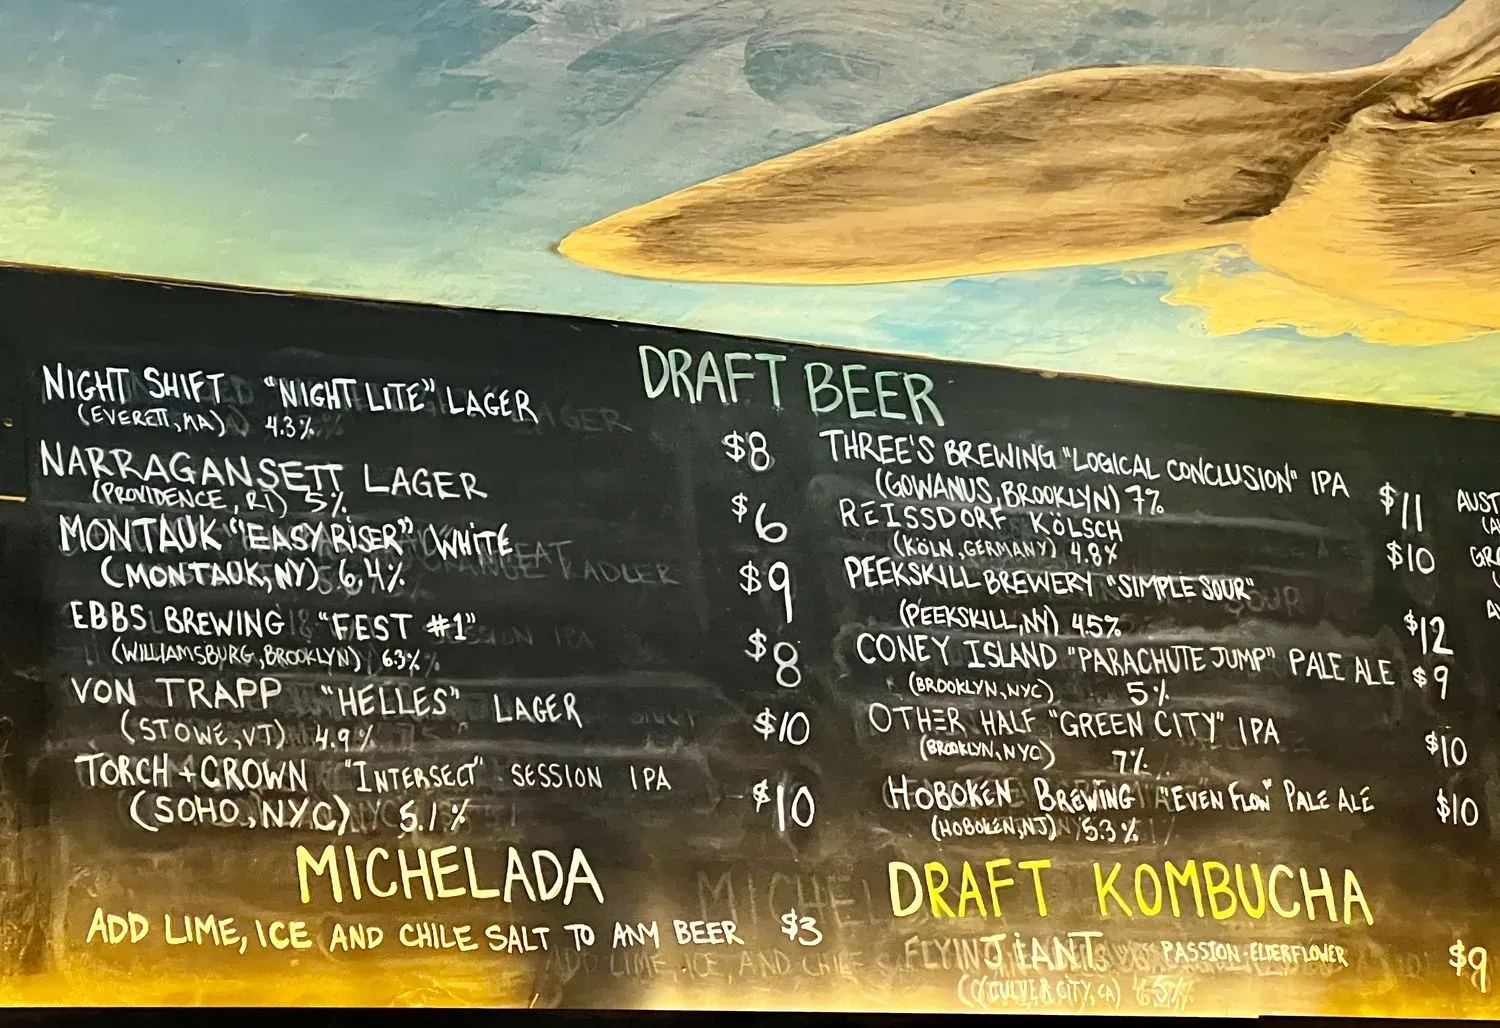 DRAFT BEER
NIGHT SHIFT "NIGHT LITE" LAGER
(EVERETT, MA) 4.3% $8
NARRAGANSETT LAGER
(PROVIDENCE, RI) 5% $6
MONTAUK "EASY RISER" WHITE
(MONTAUK, NY) 6.4% $9
EBBS BREWING "FEST #1"
(WILLIAMSBURG, BROOKLYN) 6.3% $8
VON TRAPP "HELLES" LAGER
(STOWE, VT) 4.9% $10
TORCH + CROWN "INTERSECT" SESSION IPA
(SOHO, NYC) 5.1% $10
MICHELADA
ADD LIME, ICE AND CHILE SALT TO ANY BEER $3
THREE'S BREWING "LOGICAL CONCLUSION" IPA
(GOWANUS, BROOKLYN) 7% $11
REISSDORF KÖLSCH
(KÖLN, GERMANY) 4.8% $10
PEEKSKILL BREWERY "SIMPLE SOUR"
(PEEKSKILL, NY) 4.5% $12
CONEY ISLAND "PARACHUTE JUMP" PALE ALE $9
(BROOKLYN, NYC) 5%
OTHER HALF "GREEN CITY" IPA
(BROOKLYN, NYC) 7% $10
HOBOKEN BREWING "EVEN FLOW" PALE ALE $10
(HOBOKEN, NJ) 5.3%
DRAFT KOMBUCHA
PASSION-ELDERFLOWER $9
(CULVER CITY, CA)
AUST